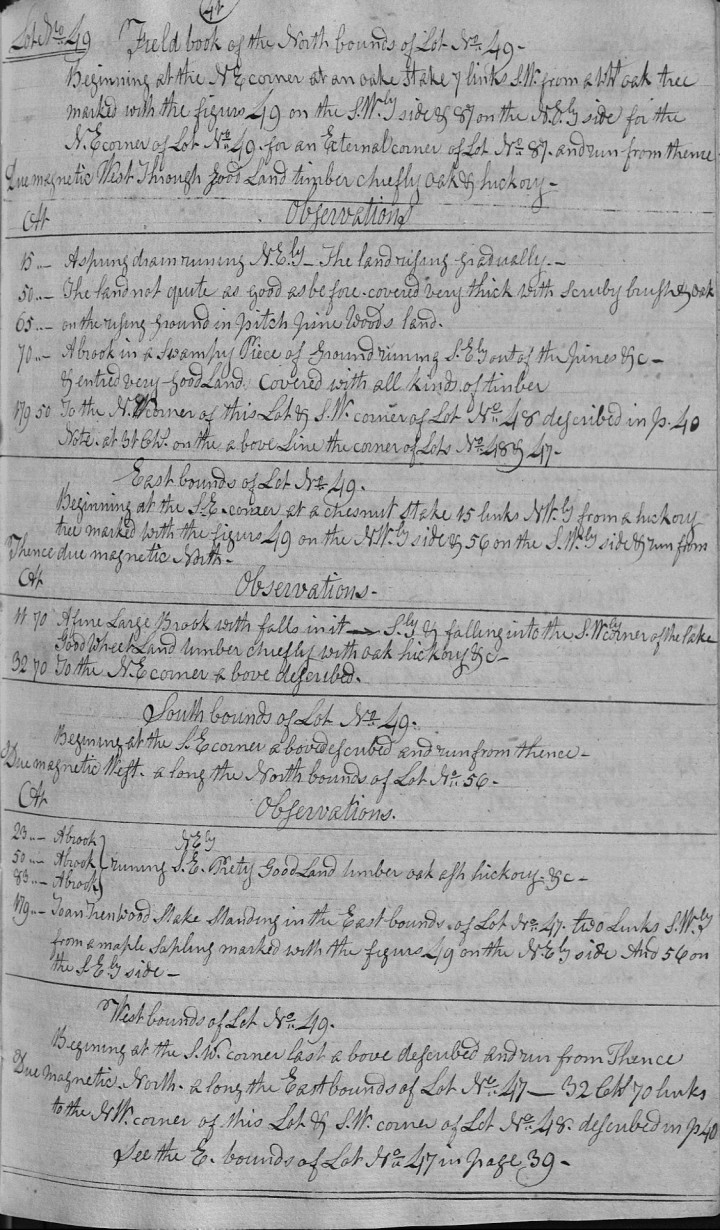 41
Lot No. 49 Field book of the North bounds of Lot No. 49-
Beginning at the N.E corner at an oake Stake 7 links S.W. from a Wt oak tree
marked with the figurs 49 on the S.Wly side & 87 on the N.Ely side for the
N.E corner of Lot No. 49. for an External corner of Lot No. 87. and run from thence
Due magnetic West Through good Land timber chiefly oak & hickory-
Ch Observations
15 ..- A spring drain runing N.Ely- The land rising gradually.-
50 ..- The land not quite as good as before. covered very thick with scruby brush & oak
65 ..- on the rising ground in pitch pine Woods land.
70 ..- A brook in a Swampy Piece of Ground runing S.Ely out of the pines &c-
& entred very good Land. Covered with all kinds of timber
179 50 To the N.W corner of this Lot & S.W. corner of Lot No. 48 described in p. 40
Note. at 31 Chs. on the above Line the corner of Lots No. 48 & 47.-
East bounds of Lot No. 49.
Beginning at the S.E. corner at a chesnut Stake 15 links N.Wly from a hickory
tree marked with the figurs 49 on the N.Wly side & 56 on the S.Wly side & run from
Thence due magnetic North.-
Ch Observations-
11 70 A fine Large Brook with falls in it - Sly & falling into the S.W corner of the lake
Good Wheet Land timber chiefly with oak hickory &c-
32 70 To the N.E corner above described.
South bounds of Lot No. 49.
Begining at the S.E corner above described and run from thence-
Due magnetic West. along the North bounds of Lot No. 56-
Ch Observations.
23 ..- A brook N.Ely
50 ..- A brook runing S.E. Prety Good Land timber oak ash hickory. &c-
83 ..- A brook
179 ..- To an Irenwood Stake Standing in the East bounds of Lot No. 47. two Links S.Wly
from a maple Sapling marked with the figurs 49 on the N.Ely side And 56 on
the S.Ely side-
West bounds of Lot No. 49.
Begining at the S.W. corner last above described and run from Thence
Due magnetic North. along the East bounds of Lot No. 47- 32 Chs 70 links
to the N.W. corner of this Lot & S.W. corner of Lot No. 48. described in p 40
See the E. bounds of Lot No 47 in page 39-